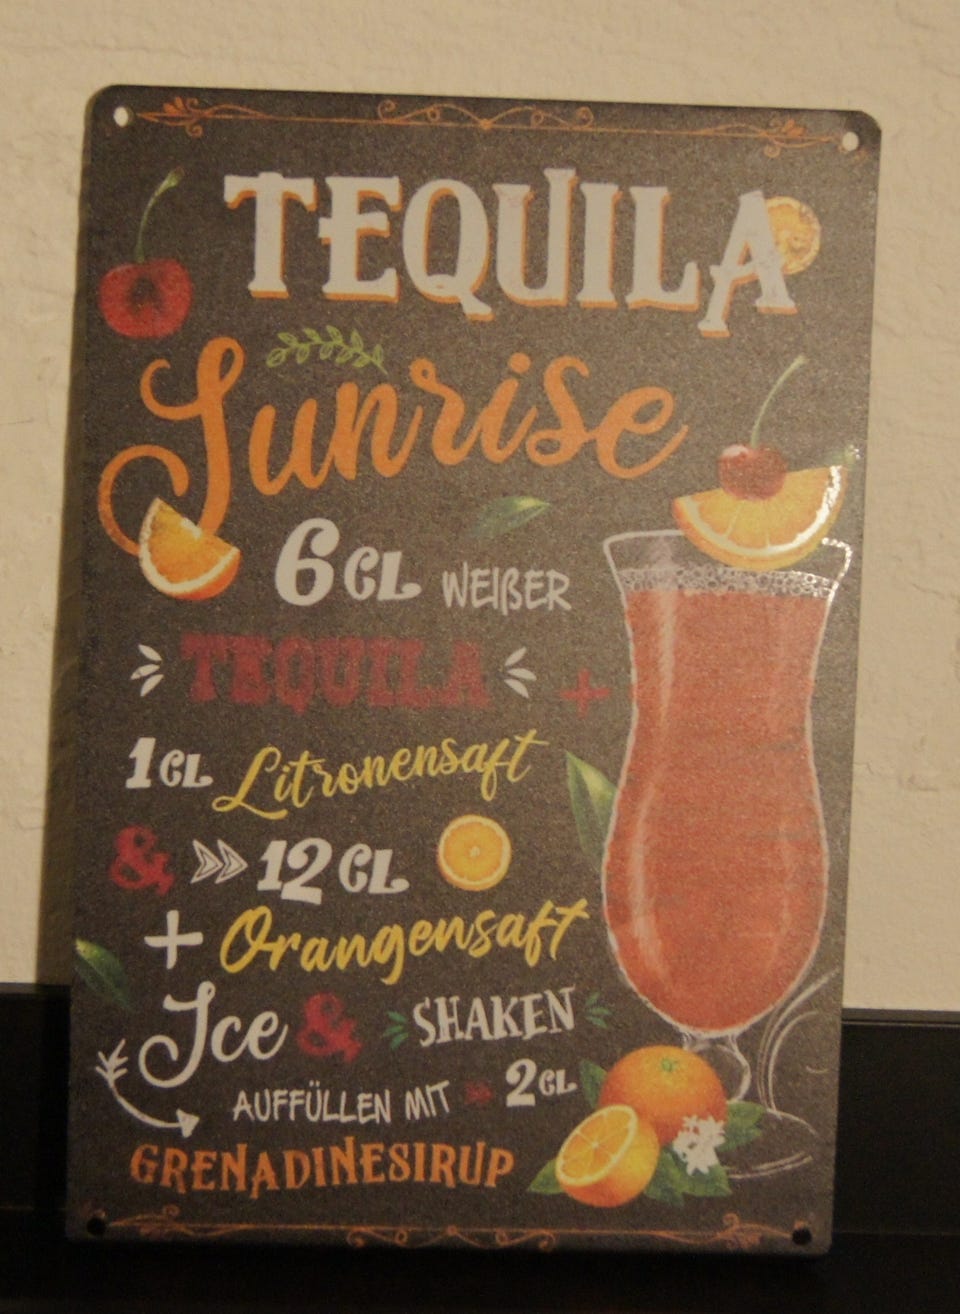 TEQUILA
Sunrise
6 CL WEIẞER
TEQUILA +
1 CL Litronensaft
& 12 CL
+ Orangensaft
Ice & SHAKEN
AUFFÜLLEN MIT 2 CL
GRENADINESIRUP